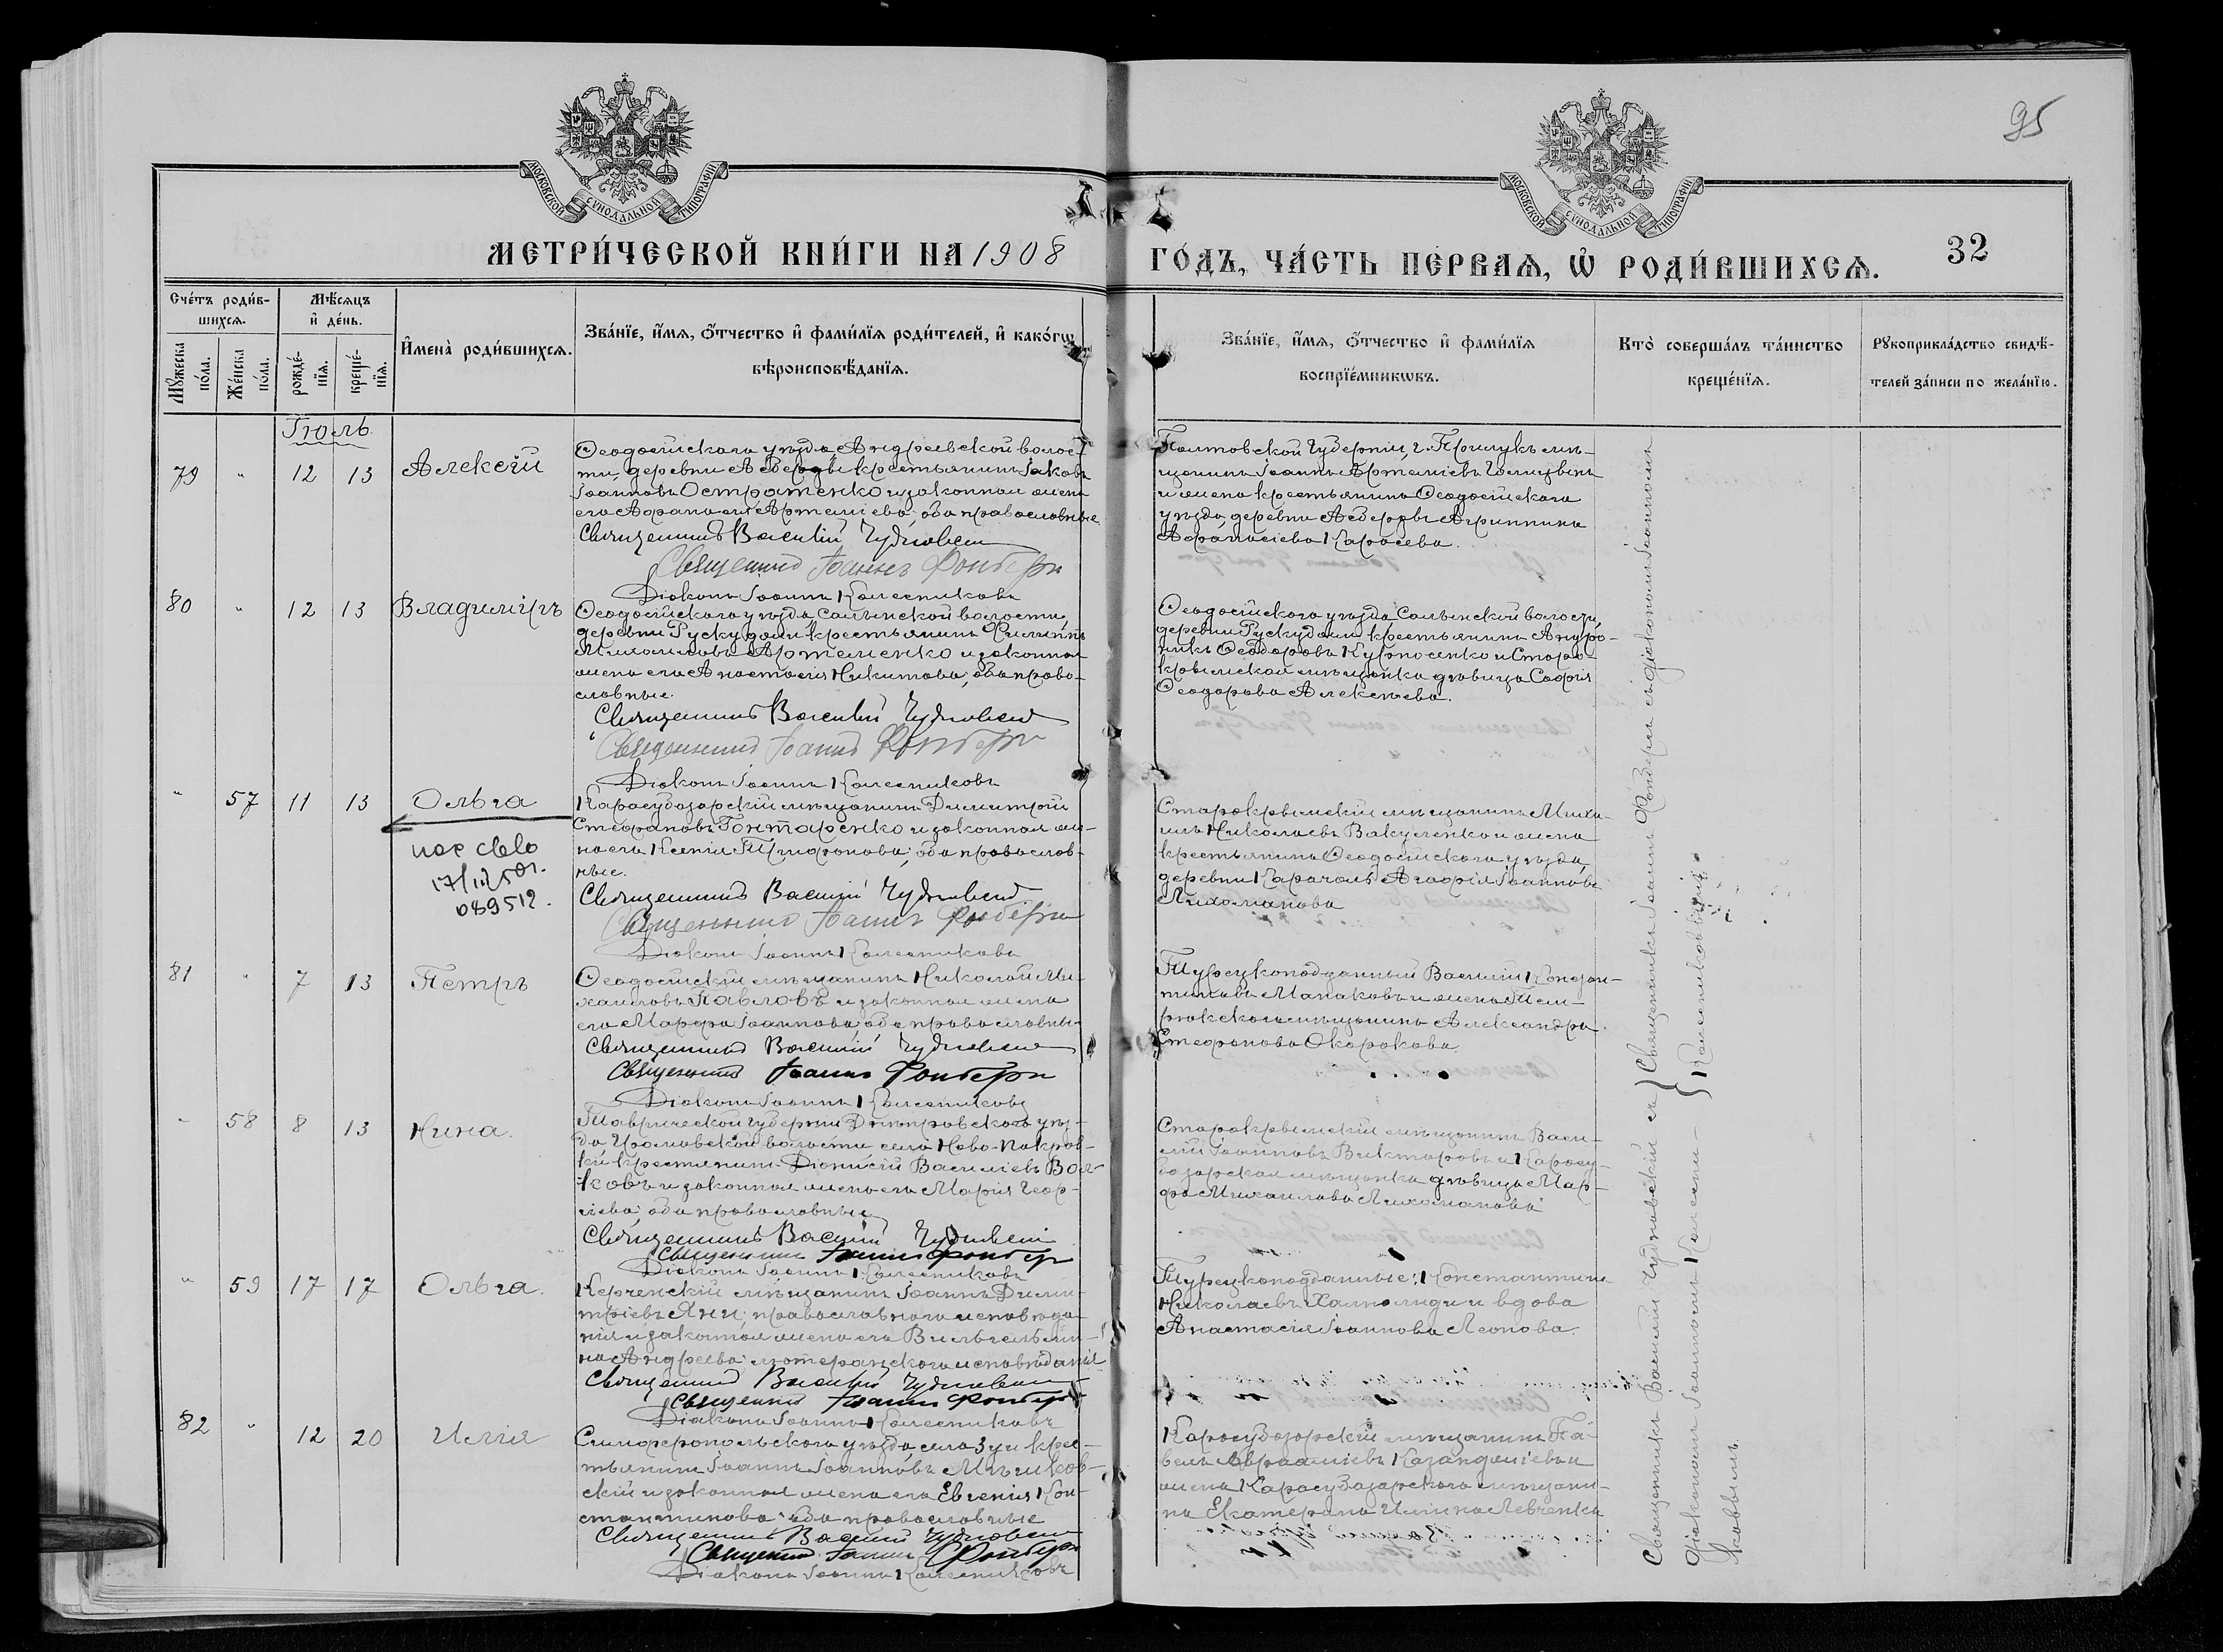 95
МОСКОВСКОЙ СѴНОДАЛЬНОЙ ТИПОГРАФІИ
МОСКОВСКОЙ СѴНОДАЛЬНОЙ ТИПОГРАФІИ
МЕТРИ́ЧЕСКОЙ КНИ́ГИ НА 1908
ГО́ДЪ, ЧА́СТЬ ПЕ́РВАѦ, Ѡ҆ РОДИ́ВШИХСѦ. 32
Сче́тъ роди́в-
шихсѧ.
Мꙋ́жеска по́ла.
Же́нска по́ла.
Мѣ́сѧцъ
и҆ де́нь.
рожде́-
нїѧ.
креще́-
нїѧ.
И҆мена̀ роди́вшихсѧ.
Зва́нїе, и҆́мѧ, ѻ҆́тчество и҆ фами́лїѧ роди́телей, и҆ како́гѡ
вѣроисповѣ́данїѧ.
Зва́нїе, и҆́мѧ, ѻ҆́тчество и҆ фами́лїѧ
воспрїе́мникѡвъ.
Кто̀ соверша́лъ та́инство
креще́нїѧ.
Рꙋкоприкла́дство свидѣ́-
телей за́писи по жела́нїю.
Іюль
79 " 12 13 Алексѣй
Ѳеодосійскаго уѣзда Андреевской волос-
ти, деревни крестьянинъ Іаковъ
Іоанновъ Остратенко и законная жена
его Артеміева, оба православные.
Священникъ Василій Чудновскій
Священникъ Іоаннъ Фонберги
Діаконъ Іоаннъ Колесниковъ
Полтавской губерніи, г. Прилукъ мѣ-
щанинъ Іоаннъ Артеміевъ
и жена крестьянина Ѳеодосійскаго
уѣзда, деревни Агриппина
Аѳанасіева Карасева.
80 " 12 13 Владиміръ
Ѳеодосійскаго уѣзда, Салынской волости,
деревни крестьянинъ Филиппъ
Михаиловъ Артеменко и законная
жена его Анастасія Никитова, оба право-
славные.
Священникъ Василій Чудновскій
Священникъ Іоаннъ Фонберги
Діаконъ Іоаннъ Колесниковъ
Ѳеодосійскаго уѣзда, Салынской волости,
деревни крестьянинъ Андро-
никъ Ѳеодоровъ Курносенко и Старо-
крымская мѣщанка дѣвица Софія
Ѳеодорова Алексѣева.
" 57 11 13 Ольга
089512.
Карасубазарскій мѣщанинъ Димитрій
Стефановъ Гонтаренко и законная же-
на его Ксенія Трифонова, оба православ-
ные.
Священникъ Василій Чудновскій
Священникъ Іоаннъ Фонберги
Діаконъ Іоаннъ Колесниковъ
Старокрымскій мѣщанинъ Миха-
илъ Николаевъ Вакуленко и жена
крестьянина Ѳеодосійскаго уѣзда,
деревни Карачоль Агафія Іоаннова
Лихоманова
81 " 7 13 Петръ
Ѳеодосійскій мѣщанинъ Николай Ми-
хаиловъ Павловъ и законная жена
его Марфа Іоаннова, оба православные
Священникъ Василій Чудновскій
Священникъ Іоаннъ Фонберги
Діаконъ Іоаннъ Колесниковъ
Турецкоподданный Василій Констан-
тиновъ Манаковъ и жена Тем-
рюкскаго мѣщанина Александра
Стефанова Окорокова.
" 58 8 13 Нина.
Таврической губерніи Днѣпровскаго уѣз-
да Громовской волости села Ново-Покров-
ки крестьянинъ Діонисій Василіевъ Вол-
ковъ и законная жена его Марія Геор-
гіева, оба православные
Священникъ Василій Чудновскій
Священникъ Іоаннъ Фонберги
Діаконъ Іоаннъ Колесниковъ
Старокрымскій мѣщанинъ Васи-
лій Іоанновъ Викторовъ и Карасу-
базарская мѣщанка дѣвица Мар-
фа Михаилова Лихоманова
" 59 17 17 Ольга.
Керченскій мѣщанинъ Іоаннъ Дими-
тріевъ Яни, православнаго исповѣда-
нія и законная жена его Вильгельми-
на Андреева, лютеранскаго исповѣданія
Священникъ Василій Чудновскій
Священникъ Іоаннъ Фонберги
Діаконъ Іоаннъ Колесниковъ
Турецкоподданные: Константинъ
Николаевъ и вдова
Анастасія Іоаннова Леонова.
82 " 12 20 Илія
Симферопольскаго уѣзда, села Зуи крес-
тьянинъ Іоаннъ Іоанновъ
скій и законная жена его Евгенія Кон-
стантинова, оба православные
Священникъ Василій Чудновскій
Священникъ Іоаннъ Фонберги
Діаконъ Іоаннъ Колесниковъ
Карасубазарскій мѣщанинъ Па-
велъ Авраамівъ и
жена Карасубазарскаго мѣщани-
на Екатерина Левченко
Священникъ Василій Чудновскій съ Священникъ Іоаннъ Фонберги съ діакономъ Іоанномъ
діакономъ Іоанномъ Колесни- Колесниковымъ
ковымъ.